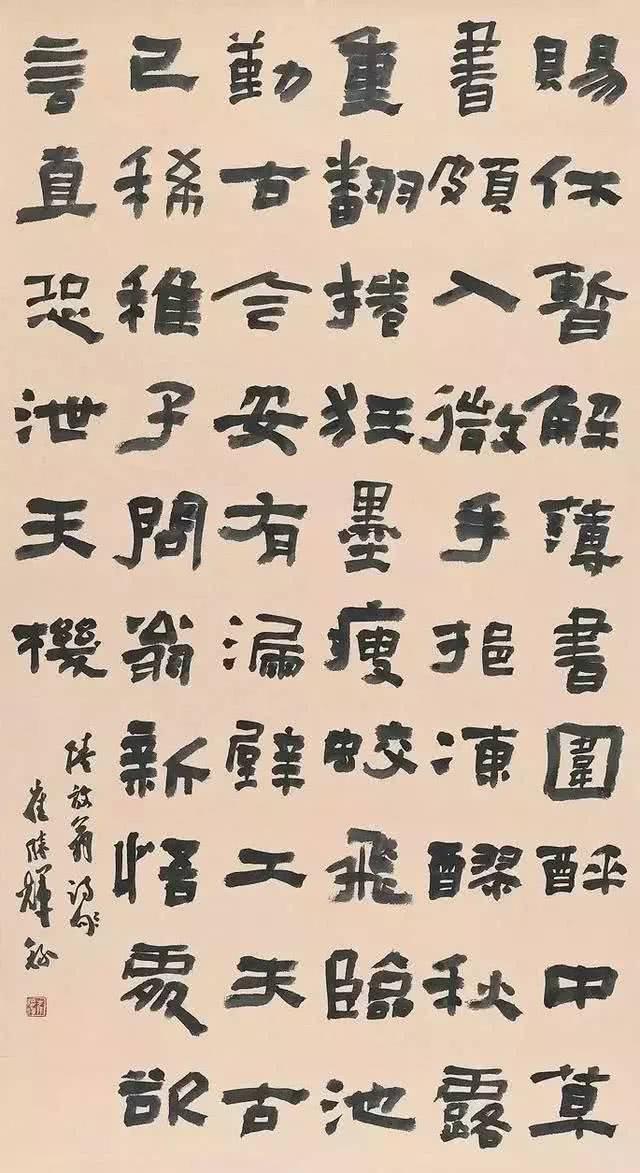 賜休暫解薄書圍醉中草
書頗入微手挹凍醪秋露
重翻捲狂墨瘦蛟飛臨池
勤古今安有漏壁工夫古
已稀稚子問翁新悟處欲
言直恐泄天機
陸放翁詩句